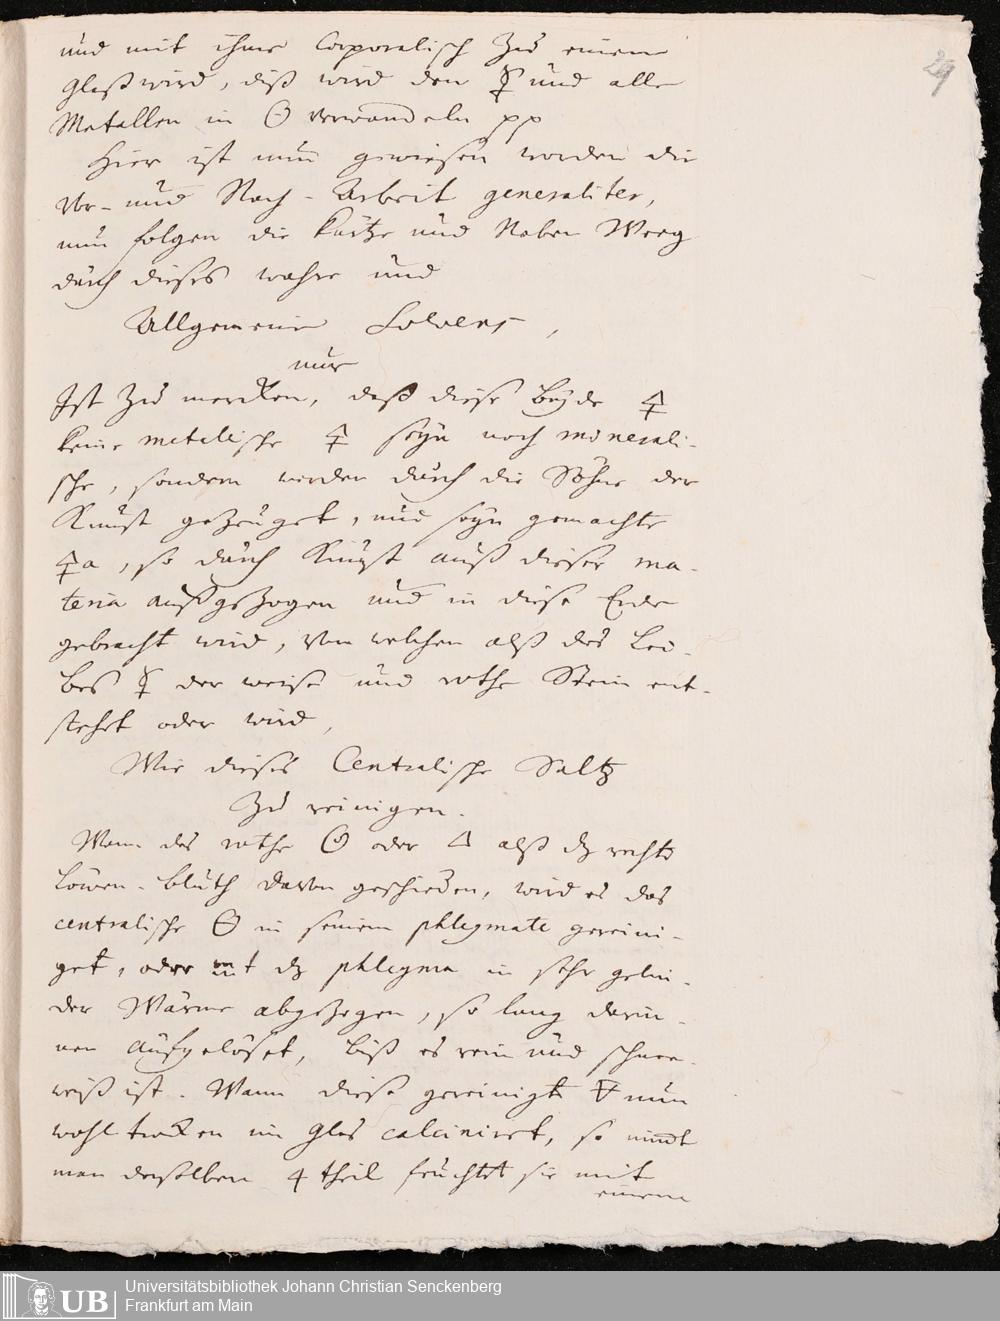 29
und mit ihme Corporalisch zu einem
Glaß wird, diß wird den ☿ und alle
Metallen in ☉ verwandeln pp
Hier ist nun gewiesen worden die
Vor- und Nach-Arbeit generaliter,
nun folgen die kurtze und Neben Weeg
durch dieses wahre und
Allgemeine Solvens,
nur
Ist zu mercken, daß diese beyde 🜍
keine metalische 🜍 seyn noch minerali-
sche, sondern werden durch die Söhne der
Kunst gezeuget, und seyn gemachte
🜍a, so durch Kunst auß dieser ma-
teria außgezogen und in diese Erde
gebracht wird, von welchen alß des Lei-
bes ☿ der weise und rothe Stein ent-
stehet oder wird,
Wie dieses Centralische Saltz
zu reinigen.
Wann das rothe ☉ oder 🜂 alß dz rechte
Löwen-bluth davon geschieden, wird es das
centralische 🜔 in seinem phlegmate gereini-
get, oder mit dz phlegma in sehr gelin-
der Wärme abgezogen, so lang darin-
nen aufgelöset, biß es rein und schnee-
weiß ist. Wann diese gereinigte 🜃 nun
wohl trocken im Glas calcinirt, so nimt
man derselben 4 theil feuchtet sie mit
einem
UB
Universitätsbibliothek Johann Christian Senckenberg
Frankfurt am Main